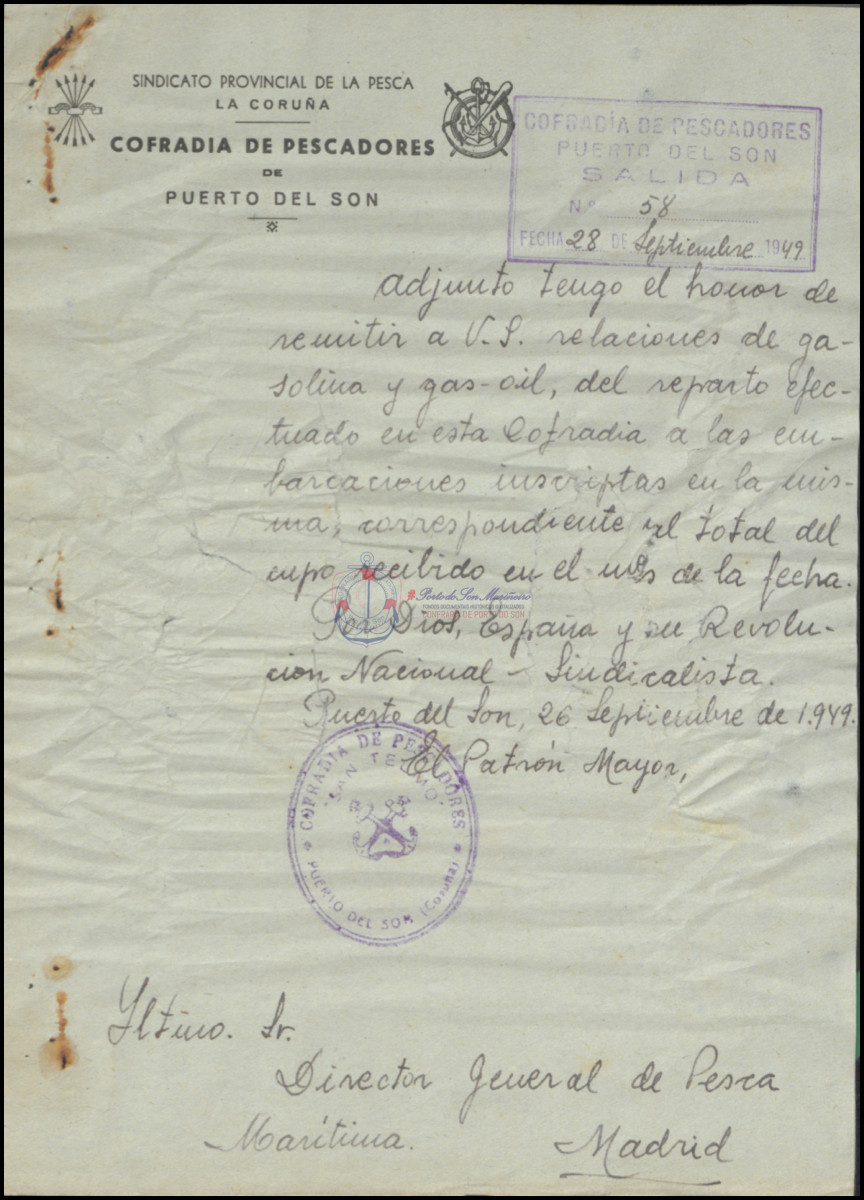 SINDICATO PROVINCIAL DE LA PESCA
LA CORUÑA
COFRADIA DE PESCADORES
DE
PUERTO DEL SON
COFRADÍA DE PESCADORES
PUERTO DEL SON
SALIDA
N.º 58
FECHA 28 DE Septiembre 1949
Adjunto tengo el honor de
remitir a V.S. relaciones de ga-
solina y gas-oil, del reparto efec-
tuado en esta Cofradia a las em-
barcaciones inscriptas en la mis-
ma, correspondiente al total del
cupo recibido en el mes de la fecha.
#PortodoSonMariñeiro
FONDOS DOCUMENTAIS HISTÓRICOS DIXITALIZADOS
CONFRARÍA DE PORTO DO SON
Por Dios, España y su Revolu-
cion Nacional-Sindicalista.
Puerto del Son, 26 Septiembre de 1.949.
El Patrón Mayor,
COFRADIA DE PESCADORES
"SAN TELMO"
PUERTO DEL SON (Coruña)
Iltmo. Sr.
Director General de Pesca
Marítima. Madrid